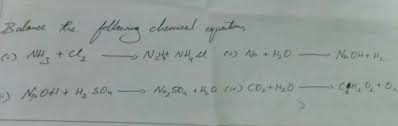 Balance the following chemical equations
(i) NH3 + Cl2 → N2 + NH4Cl (iii) Na + H2O → NaOH + H2
ii) NaOH + H2SO4 → Na2SO4 + H2O (iv) CO2 + H2O → C6H12O2 + O2